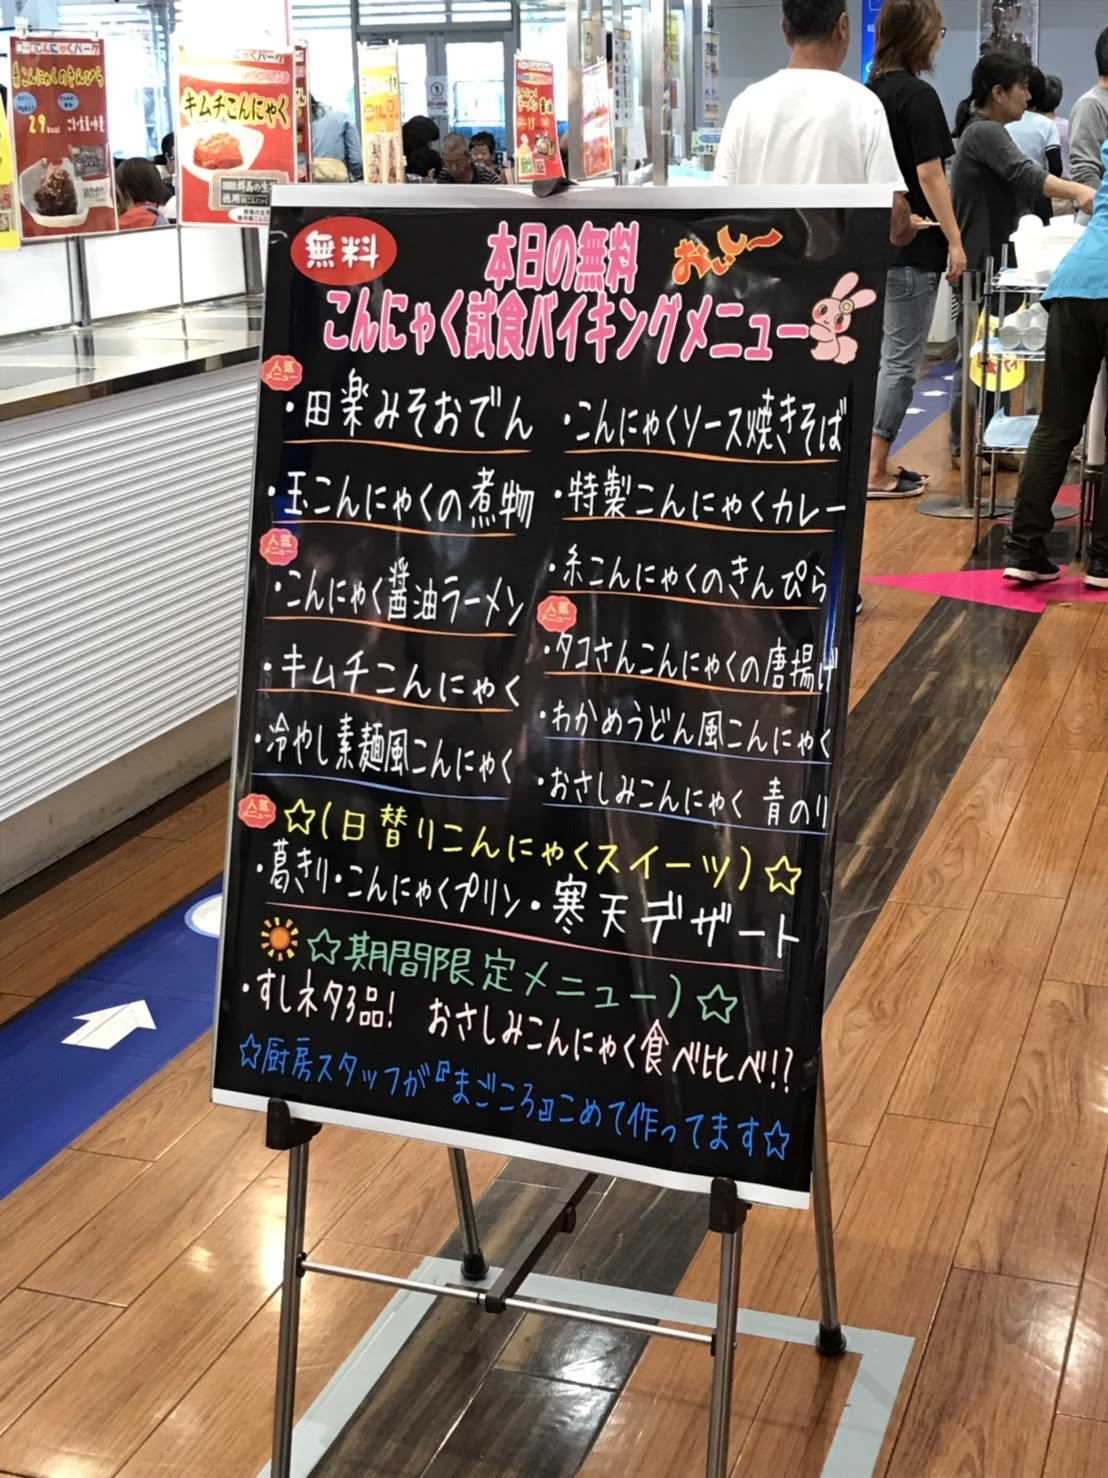 こんにゃくパーク
糸こんにゃくのきんぴら
29
こんにゃくパーク
キムチこんにゃく
無料
本日の無料
おいしー
こんにゃく試食バイキングメニュー
人気メニュー
・田楽みそおでん
・こんにゃくソース焼きそば
・玉こんにゃくの煮物
・特製こんにゃくカレー
人気メニュー
・こんにゃく醤油ラーメン
・糸こんにゃくのきんぴら
・キムチこんにゃく
人気メニュー
・タコさんこんにゃくの唐揚げ
・冷やし素麺風こんにゃく
・わかめうどん風こんにゃく
・おさしみこんにゃく 青のり
人気メニュー
☆(日替りこんにゃくスイーツ)☆
・葛きり・こんにゃくプリン・寒天デザート
☆期間限定メニュー)☆
・すしネタ3品! おさしみこんにゃく食べ比べ!?
☆厨房スタッフが『まごころ』こめて作ってます☆